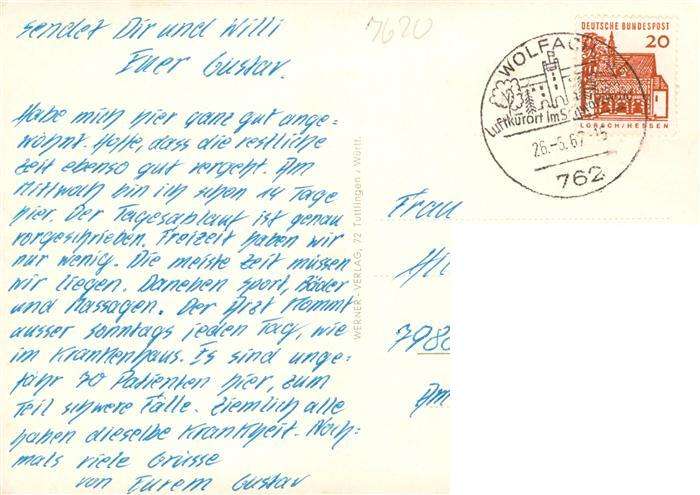 sendet Dir und Willi
Euer Gustav.
Habe mich hier ganz gut einge=
wöhnt. Hoffe, dass die restliche
Zeit ebenso gut vergeht. Am
Mittwoch bin ich schon 14 Tage
hier. Der Tagesablauf ist genau
vorgeschrieben. Freizeit haben wir
nur wenig. Die meiste Zeit müssen
wir liegen. Daneben Sport, Bäder
und Massagen. Der Arzt kommt
ausser sonntags jeden Tag, wie
im Krankenhaus. Es sind unge=
fähr 70 Patienten hier, zum
Teil schwere Fälle. Ziemlich alle
haben dieselbe Krankheit. Noch=
mals viele Grüsse
von Eurem Gustav
WERNER-VERLAG, 72 Tuttlingen / Württ.
7620
DEUTSCHE BUNDESPOST
20
LORSCH/HESSEN
WOLFACH
Luftkurort im
26.-5.67
762
Frau
798
Am